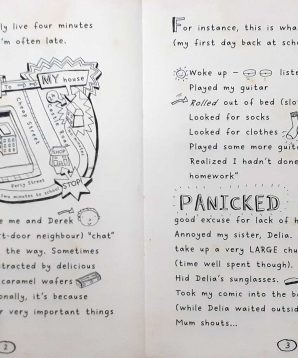 ly live four minutes
'm often late.
MY house
Cheap Street
SHOP
Derty Street
minutes to school
STOP!
e me and Derek
t-door neighbour) "chat"
the way. Sometimes
tracted by delicious
caramel wafers
onally, it's because
r very important things
2
For instance, this is wha
(my first day back at scho
Woke up - liste
Played my guitar
Rolled out of bed (slo
Looked for socks
Looked for clothes
Played some more guita
Realized I hadn't done
homework"
PANICKED
good excuse for lack of h
Annoyed my sister, Delia.
take up a very LARGE chu
(time well spent though).
Hid Delia's sunglasses.
Took my comic into the b
(while Delia waited outsid
Mum shouts...
3